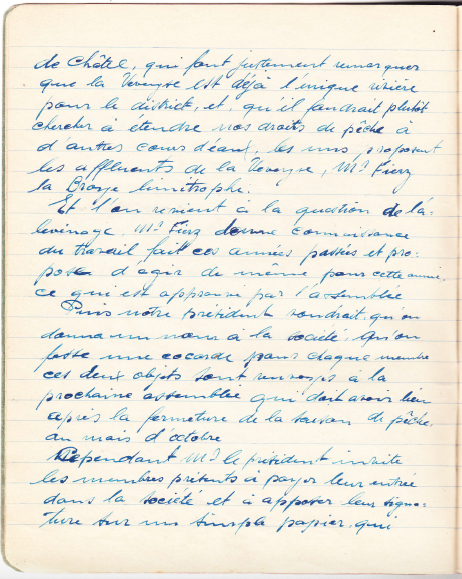 de Châtel, qui font justement remarquer
que la Veveyse est déjà l'unique rivière
pour le district, et, qu'il faudrait plutôt
chercher à étendre nos droits de pêche à
d'autres cours d'eaux, les uns proposent
les affluents de la Veveyse, Mr Fierz
la Broye limitrophe.
Et l'on revient à la question de l'a-
levinage. Mr Fierz donne connaissance
du travail fait ces années passées et pro-
pose d'agir de même pour cette année,
ce qui est approuvé par l'assemblée
Puis notre président voudrait qu'on
donna un nom à la société, qu'on
fasse une cocarde pour chaque membre
ces deux objets sont renvoyés à la
prochaine assemblée qui doit avoir lieu
après la fermeture de la saison de pêche,
au mois d'octobre
Cependant Mr le président invite
les membres présents à payer leur entrée
dans la société et à apposer leur signa-
ture sur un simple papier, qui